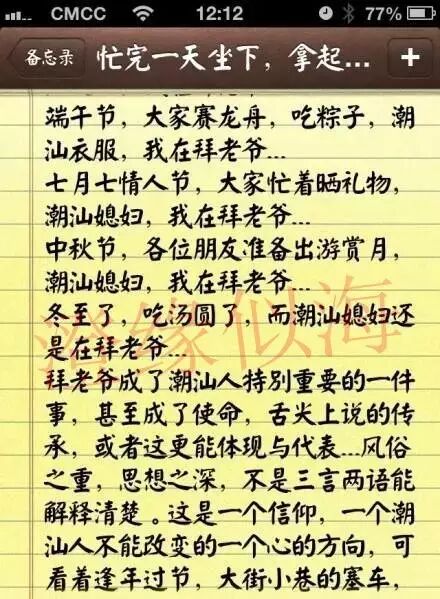 CMCC 12:12 77%
备忘录 忙完一天坐下，拿起... +
端午节，大家赛龙舟，吃粽子，潮
汕衣服，我在拜老爷...
七月七情人节，大家忙着晒礼物，
潮汕媳妇，我在拜老爷...
中秋节，各位朋友准备出游赏月，
潮汕媳妇，我在拜老爷...
冬至了，吃汤圆了，而潮汕媳妇还
是在拜老爷...
拜老爷成了潮汕人特别重要的一件
事，甚至成了使命，舌尖上说的传
承，或者这更能体现与代表...风俗
之重，思想之深，不是三言两语能
解释清楚。这是一个信仰，一个潮
汕人不能改变的一个心的方向，可
看着逢年过节，大街小巷的塞车，
缘似海